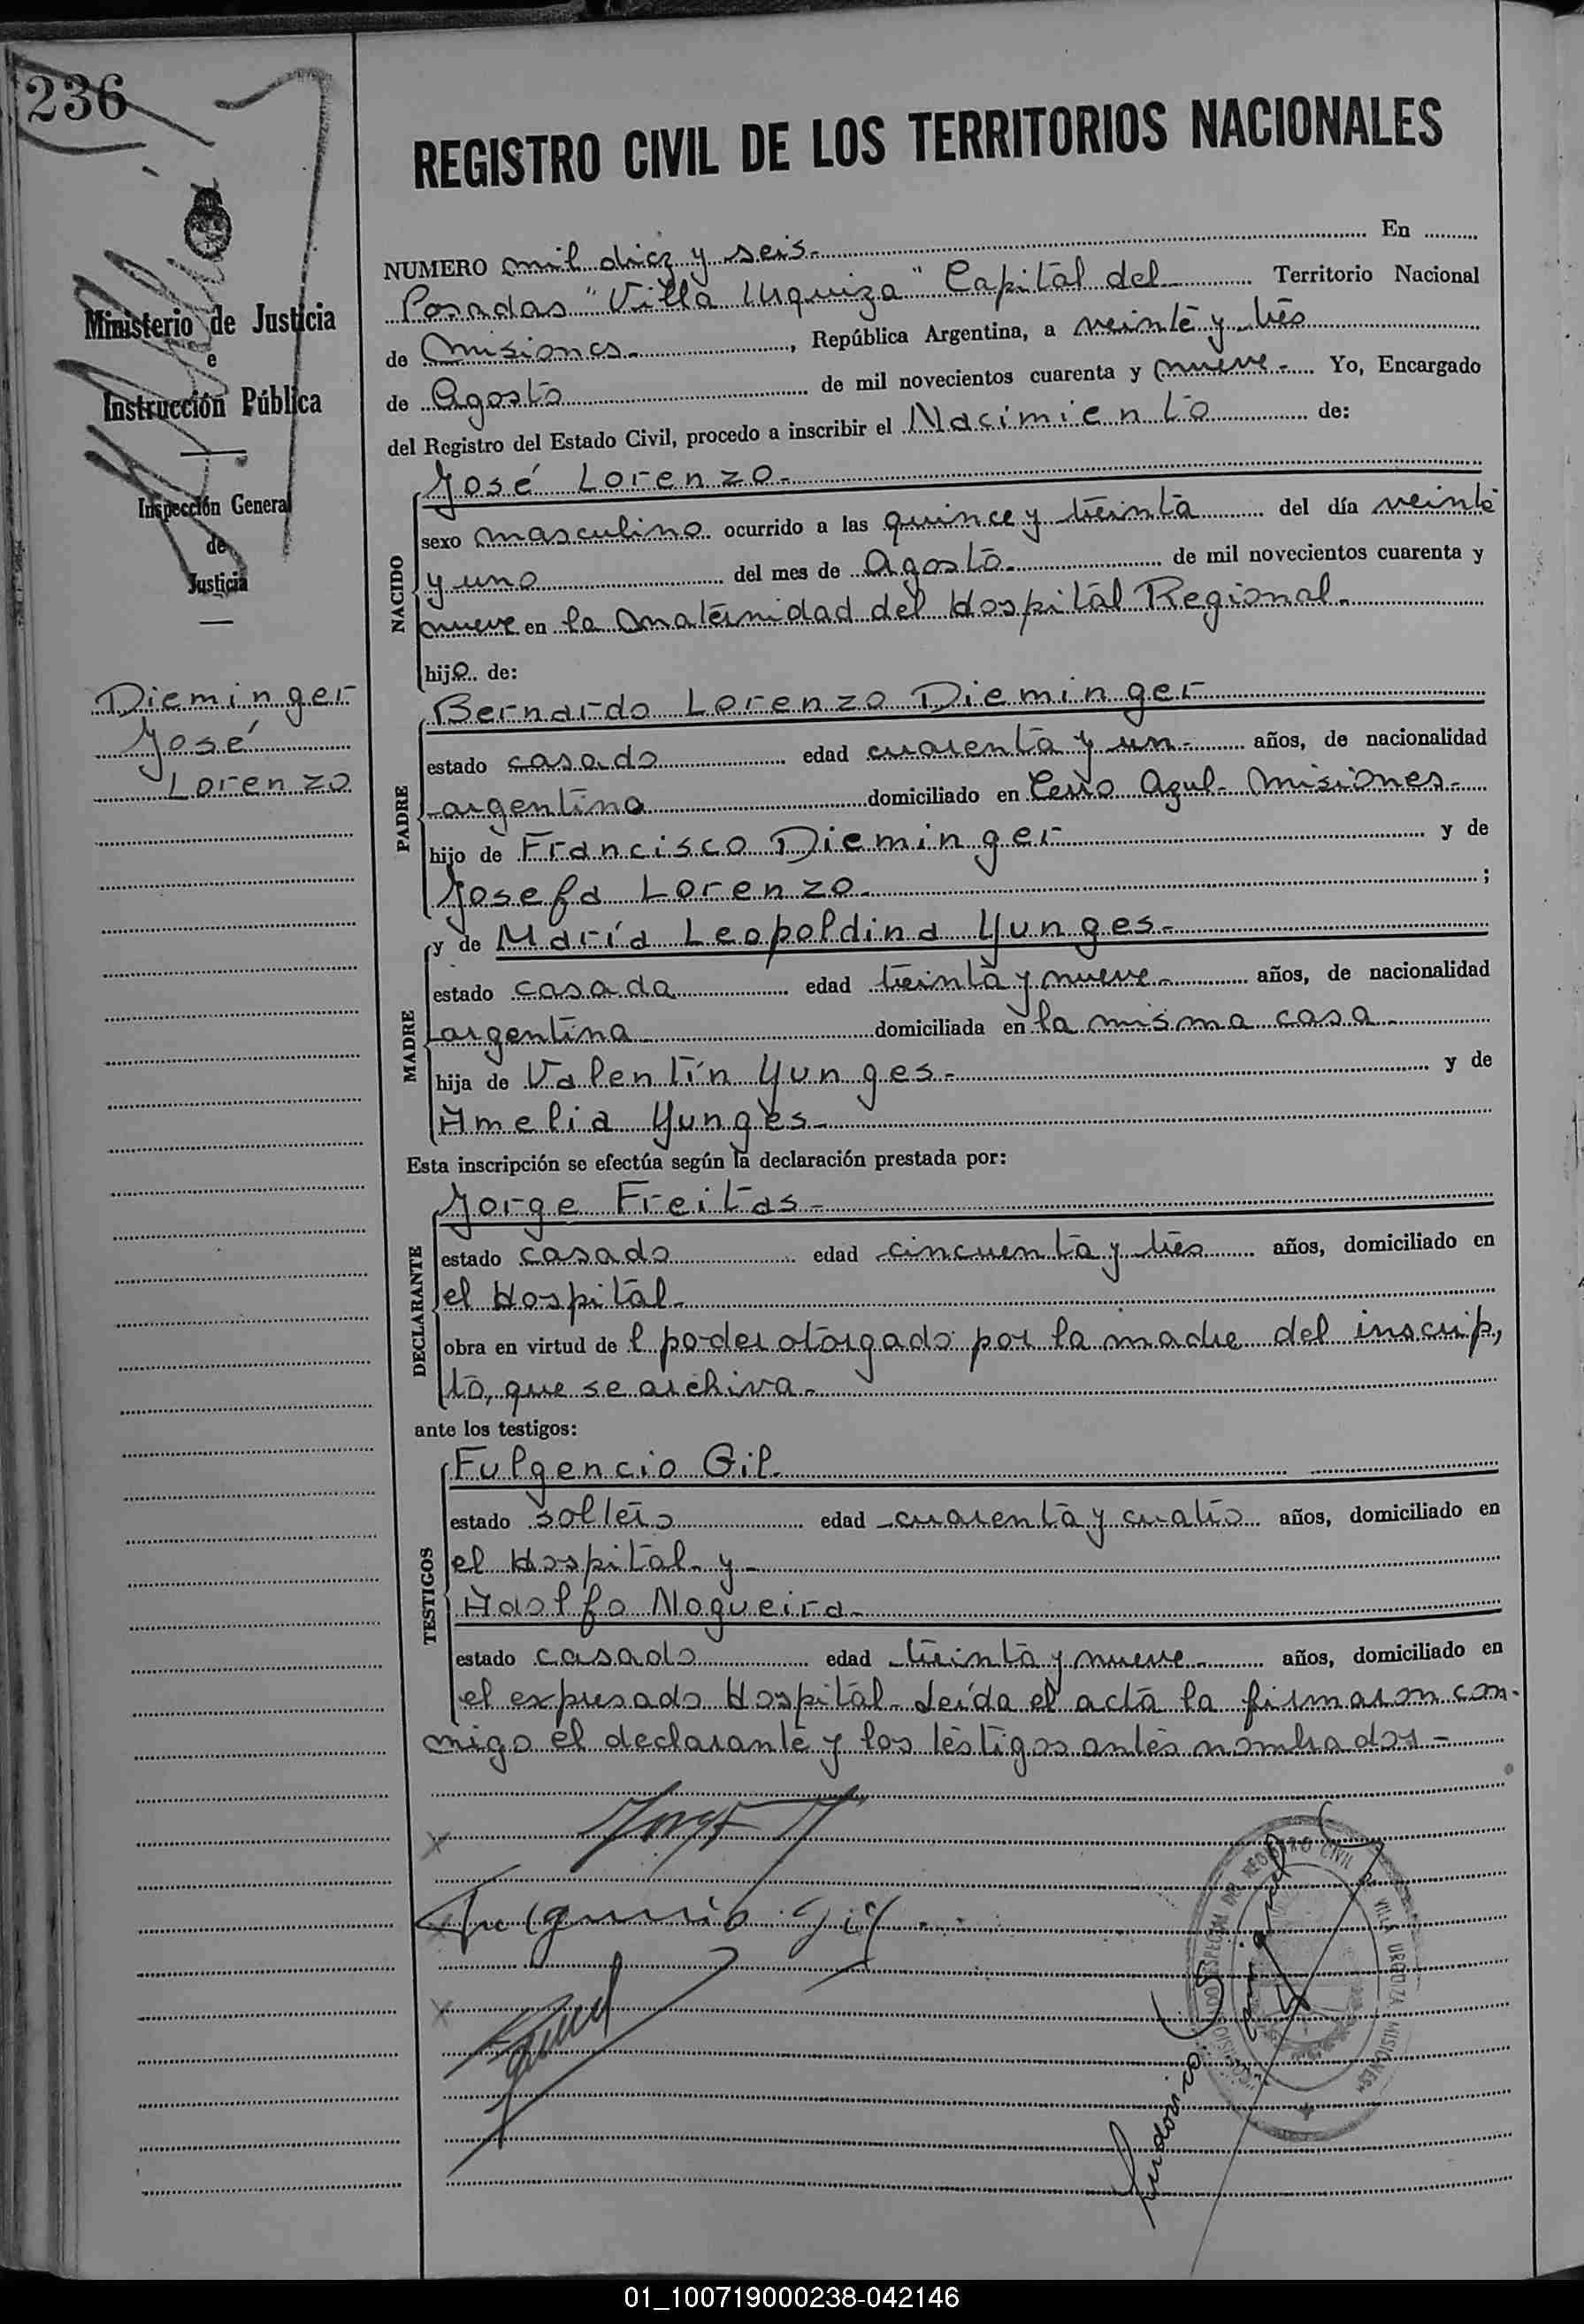 236
Ministerio de Justicia
e
Instrucción Pública
Inspección General
de
Justicia
Dieminger
José
Lorenzo
REGISTRO CIVIL DE LOS TERRITORIOS NACIONALES
NUMERO mil diez y seis.- En
Posadas "Villa Urquiza" Capital del Territorio Nacional
de Misiones.-, República Argentina, a veinte y tres
de Agosto de mil novecientos cuarenta y nueve.- Yo, Encargado
del Registro del Estado Civil, procedo a inscribir el Nacimiento de:
NACIDO
José Lorenzo.-
sexo masculino ocurrido a las quince y treinta del día veinte
y uno del mes de Agosto.- de mil novecientos cuarenta y
nueve en la Maternidad del Hospital Regional.-
hijo de:
PADRE
Bernardo Lorenzo Dieminger
estado casado edad cuarenta y un.- años, de nacionalidad
argentina domiciliado en Cerro Azul- Misiones.-
hijo de Francisco Dieminger y de
Josefa Lorenzo.- ;
MADRE
y de María Leopoldina Yunges.-
estado casada edad treinta y nueve.- años, de nacionalidad
argentina domiciliada en la misma casa.-
hija de Valentín Yunges.- y de
Amelia Yunges.-
Esta inscripción se efectúa según la declaración prestada por:
DECLARANTE
Jorge Freitas.-
estado casado edad cincuenta y tres años, domiciliado en
el Hospital.-
obra en virtud de l poder otorgado por la madre del inscrip,
to, que se archiva.-
ante los testigos:
TESTIGOS
Fulgencio Gil.
estado soltero edad cuarenta y cuatro años, domiciliado en
el Hospital- y-
Adolfo Nogueira.-
estado casado edad treinta y nueve.- años, domiciliado en
el expresado Hospital- Leída el acta la firmaron con-
migo el declarante y los testigos antes nombrados.-
Fulgencio Gil
REGISTRO CIVIL
VILLA URQUIZA MISIONES
Ludovico
01_100719000238-042146